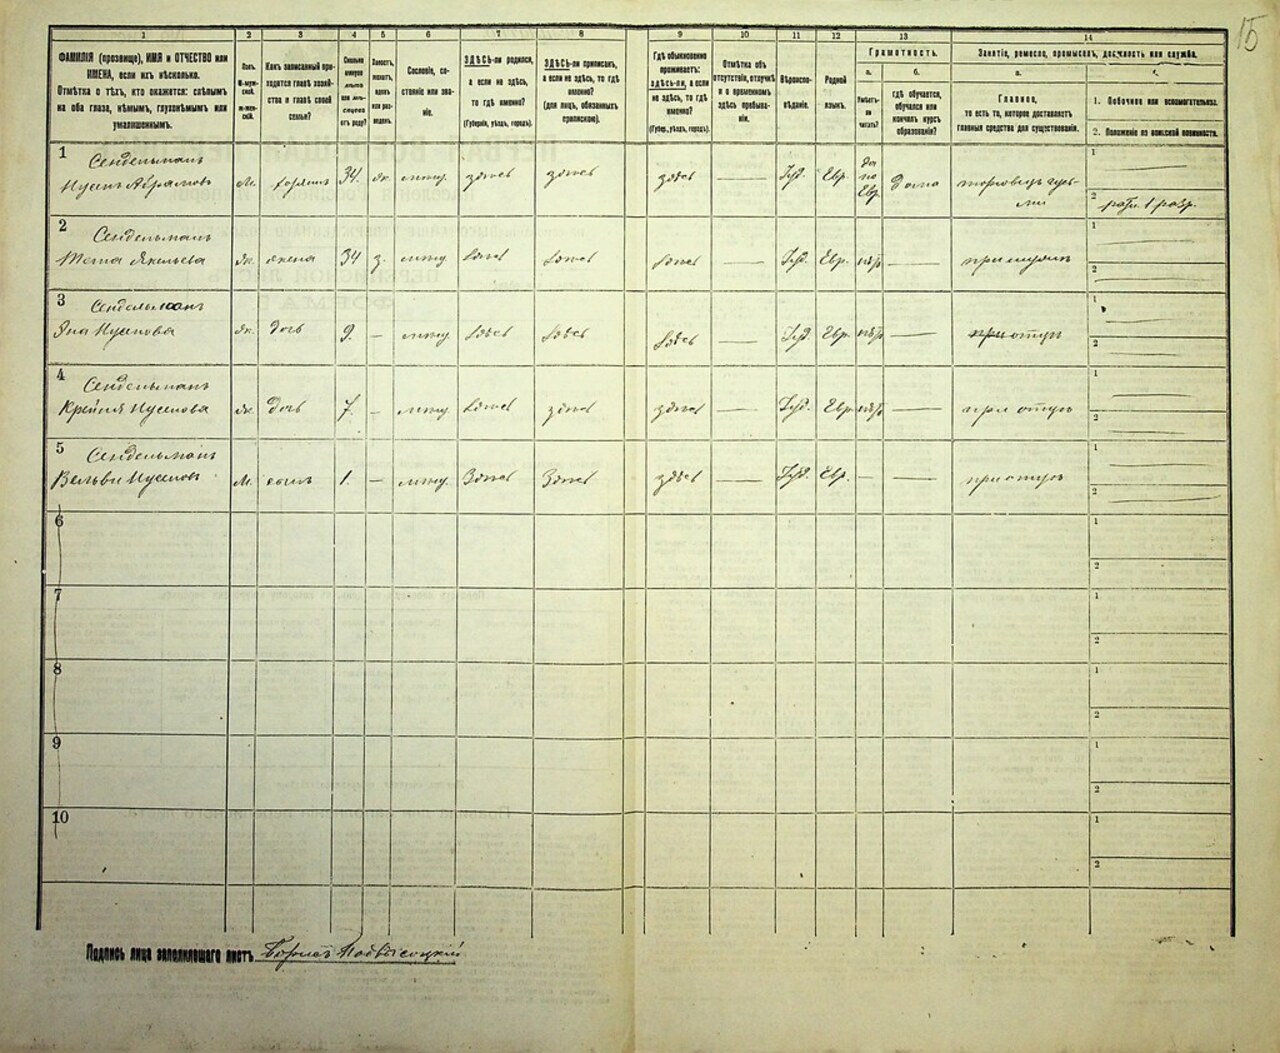 15
1 2 3 4 5 6 7 8 9 10 11 12 13 14
ФАМИЛІЯ (прозвище), ИМЯ и ОТЧЕСТВО или
ИМЕНА, если ихъ нѣсколько.
Отмѣтка о тѣхъ, кто окажется: слѣпымъ
на оба глаза, нѣмымъ, глухонѣмымъ или
умалишеннымъ.
Полъ.
М-муж-
ской.
ж-жен-
скій.
Какъ записанный при-
ходится главѣ хозяй-
ства и главѣ своей
семьи?
Сколько
минуло
лѣтъ
или мѣ-
сяцевъ
отъ роду?
Холостъ,
женатъ,
вдовъ
или раз-
веденъ.
Сословіе, со-
стояніе или зва-
ніе.
ЗДѢСЬ-ли родился,
а если не здѣсь,
то гдѣ именно?
(Губернія, уѣздъ, городъ).
ЗДѢСЬ-ли приписанъ,
а если не здѣсь, то гдѣ
именно?
(для лицъ, обязанныхъ
припискою).
Гдѣ обыкновенно
проживаетъ:
здѣсь-ли, а если
не здѣсь, то гдѣ
именно?
(Губер., уѣздъ, городъ).
Отмѣтка объ
отсутствіи, отлучкѣ
и о временномъ
здѣсь пребыва-
ніи.
Вѣроиспо-
вѣданіе.
Родной
языкъ.
Грамотность.
а.
Умѣетъ-
ли
читать?
б.
гдѣ обучается,
обучался или
кончилъ курсъ
образованія?
Занятіе, ремесло, промыселъ, должность или служба.
а.
Главное,
то есть то, которое доставляетъ
главныя средства для существованія.
1. Побочное или вспомогательное.
2. Положеніе по воинской повинности.
1 Сендельманъ
Нусинъ Абрамовъ м. хозяинъ 34. ж. мѣщ. здѣсь здѣсь здѣсь Іуд. Евр. да по Евр. дома
2 Сендельманъ
Янкелева ж. жена 34 з. мѣщ. здѣсь здѣсь здѣсь — Іуд. Евр. нѣт — при мужѣ
3 Сендельманъ
Нусинова ж. дочь 9. — мѣщ. здѣсь здѣсь здѣсь — Іуд. Евр. нѣт — при отцѣ
4 Сендельманъ
Крейня Нусинова ж. дочь 7. — мѣщ. здѣсь здѣсь здѣсь — Іуд. Евр. нѣт — при отцѣ
5 Сендельманъ
Нусиновъ м. сынъ 1. — мѣщ. здѣсь здѣсь здѣсь — Іуд. Евр. — — при отцѣ
6
7
8
9
10
Подпись лица заполнившаго листъ